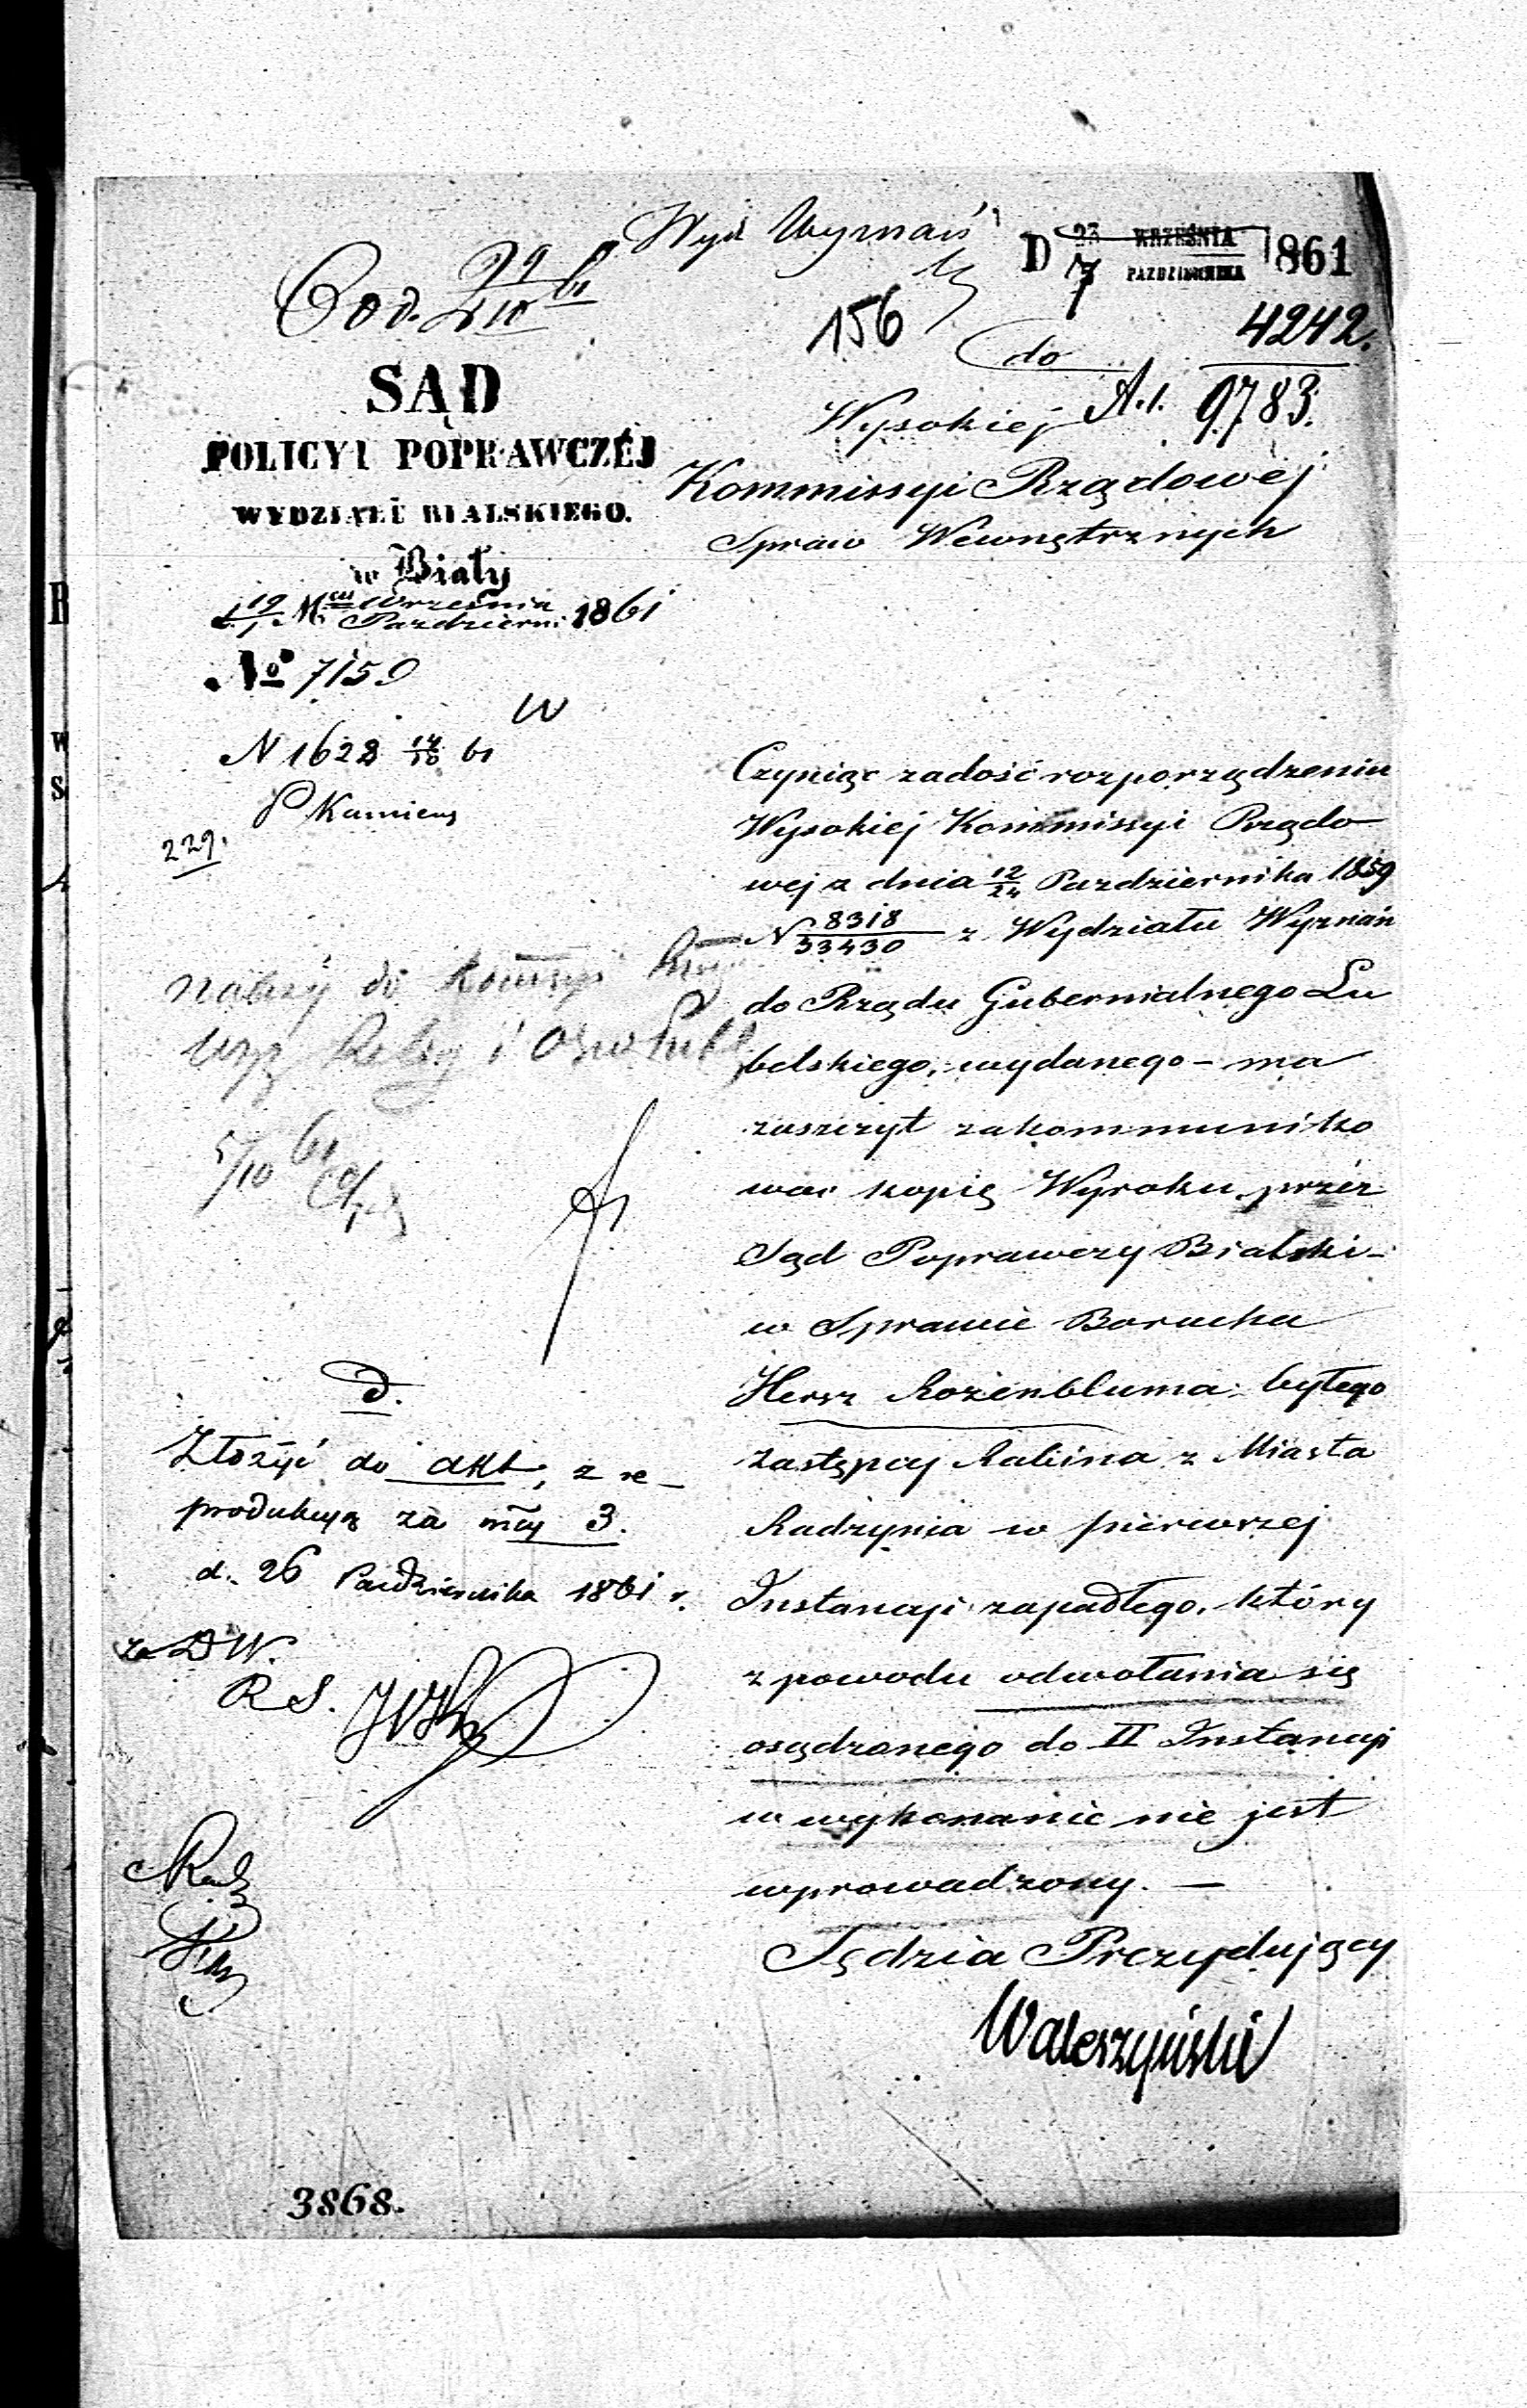 Wyd Wyznań
D 23 WRZEŚNIA 1861
7 PAZDZIERNIKA
156
4242.
do
A.1. 9783.
SĄD
POLICYI POPRAWCZÉJ
WYDZIAŁU BIALSKIEGO.
w Biały
d. 19/1 Mca Września Pazdzierni 1861
№ 7159
W
N 1628 14/10 61
229.
Wysokiej
Kommissyi Rządowéj
Spraw Wewnętrznych
Czyniąc zadość rozporządzeniu
Wysokiej Kommissyi Rządo
wej z dnia 12/24 Pazdziernika 1859
N 8318/33430 z Wydziału Wyznań
do Rządu Gubernialnego Lu
belskiego, wydanego - ma
zaszczyt zakommuniko
wac kopię Wyroku przéz
Sąd Poprawczy Bialski -
w Sprawie Borucha
Hersz Rozenbluma byłego
zastępcy Rabina z Miasta
Radzynia w pierwszej
Instancyi zapadłego, który
z powodu odwołania się
osądzonego do II Instancyi
w wykonanie nie jest
wprowadzony. —
Sędzia Prezydujący
Waleszyński
należy do Kommsyi
5/10 61
D.
Złożyć do akt, z re-
produkcyą za mcy 3.
d. 26 Pazdziernika 1861 r.
za DW.
R S.
3868.